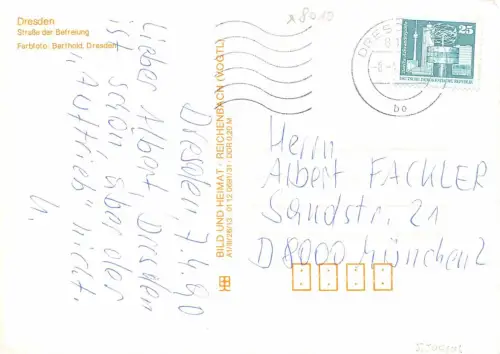 Dresden
Straße der Befreiung
Farbfoto: Barthold, Dresden
Dresden, 7.4.90
Lieber Albert, Dresden
ist schön, aber der
"Auftrieb" nicht.
BILD UND HEIMAT · REICHENBACH (VOGTL)
A1/B/26/13 01 12 0691/31 · DDR 0,20 M
x 8010
DRES
bo
25
DEUTSCHE DEMOKRATISCHE REPUBLIK
Herrn
Albert FACKLER
Sandstr. 21
D 8000 München 2